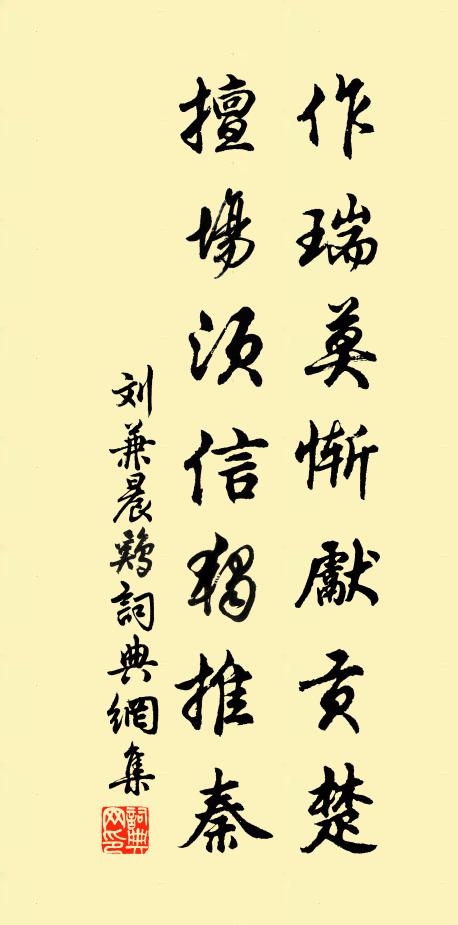 作瑞莫慚獻貢楚
擅場須信獨推秦
刘兼晨鷄詞典網集
詞典网印